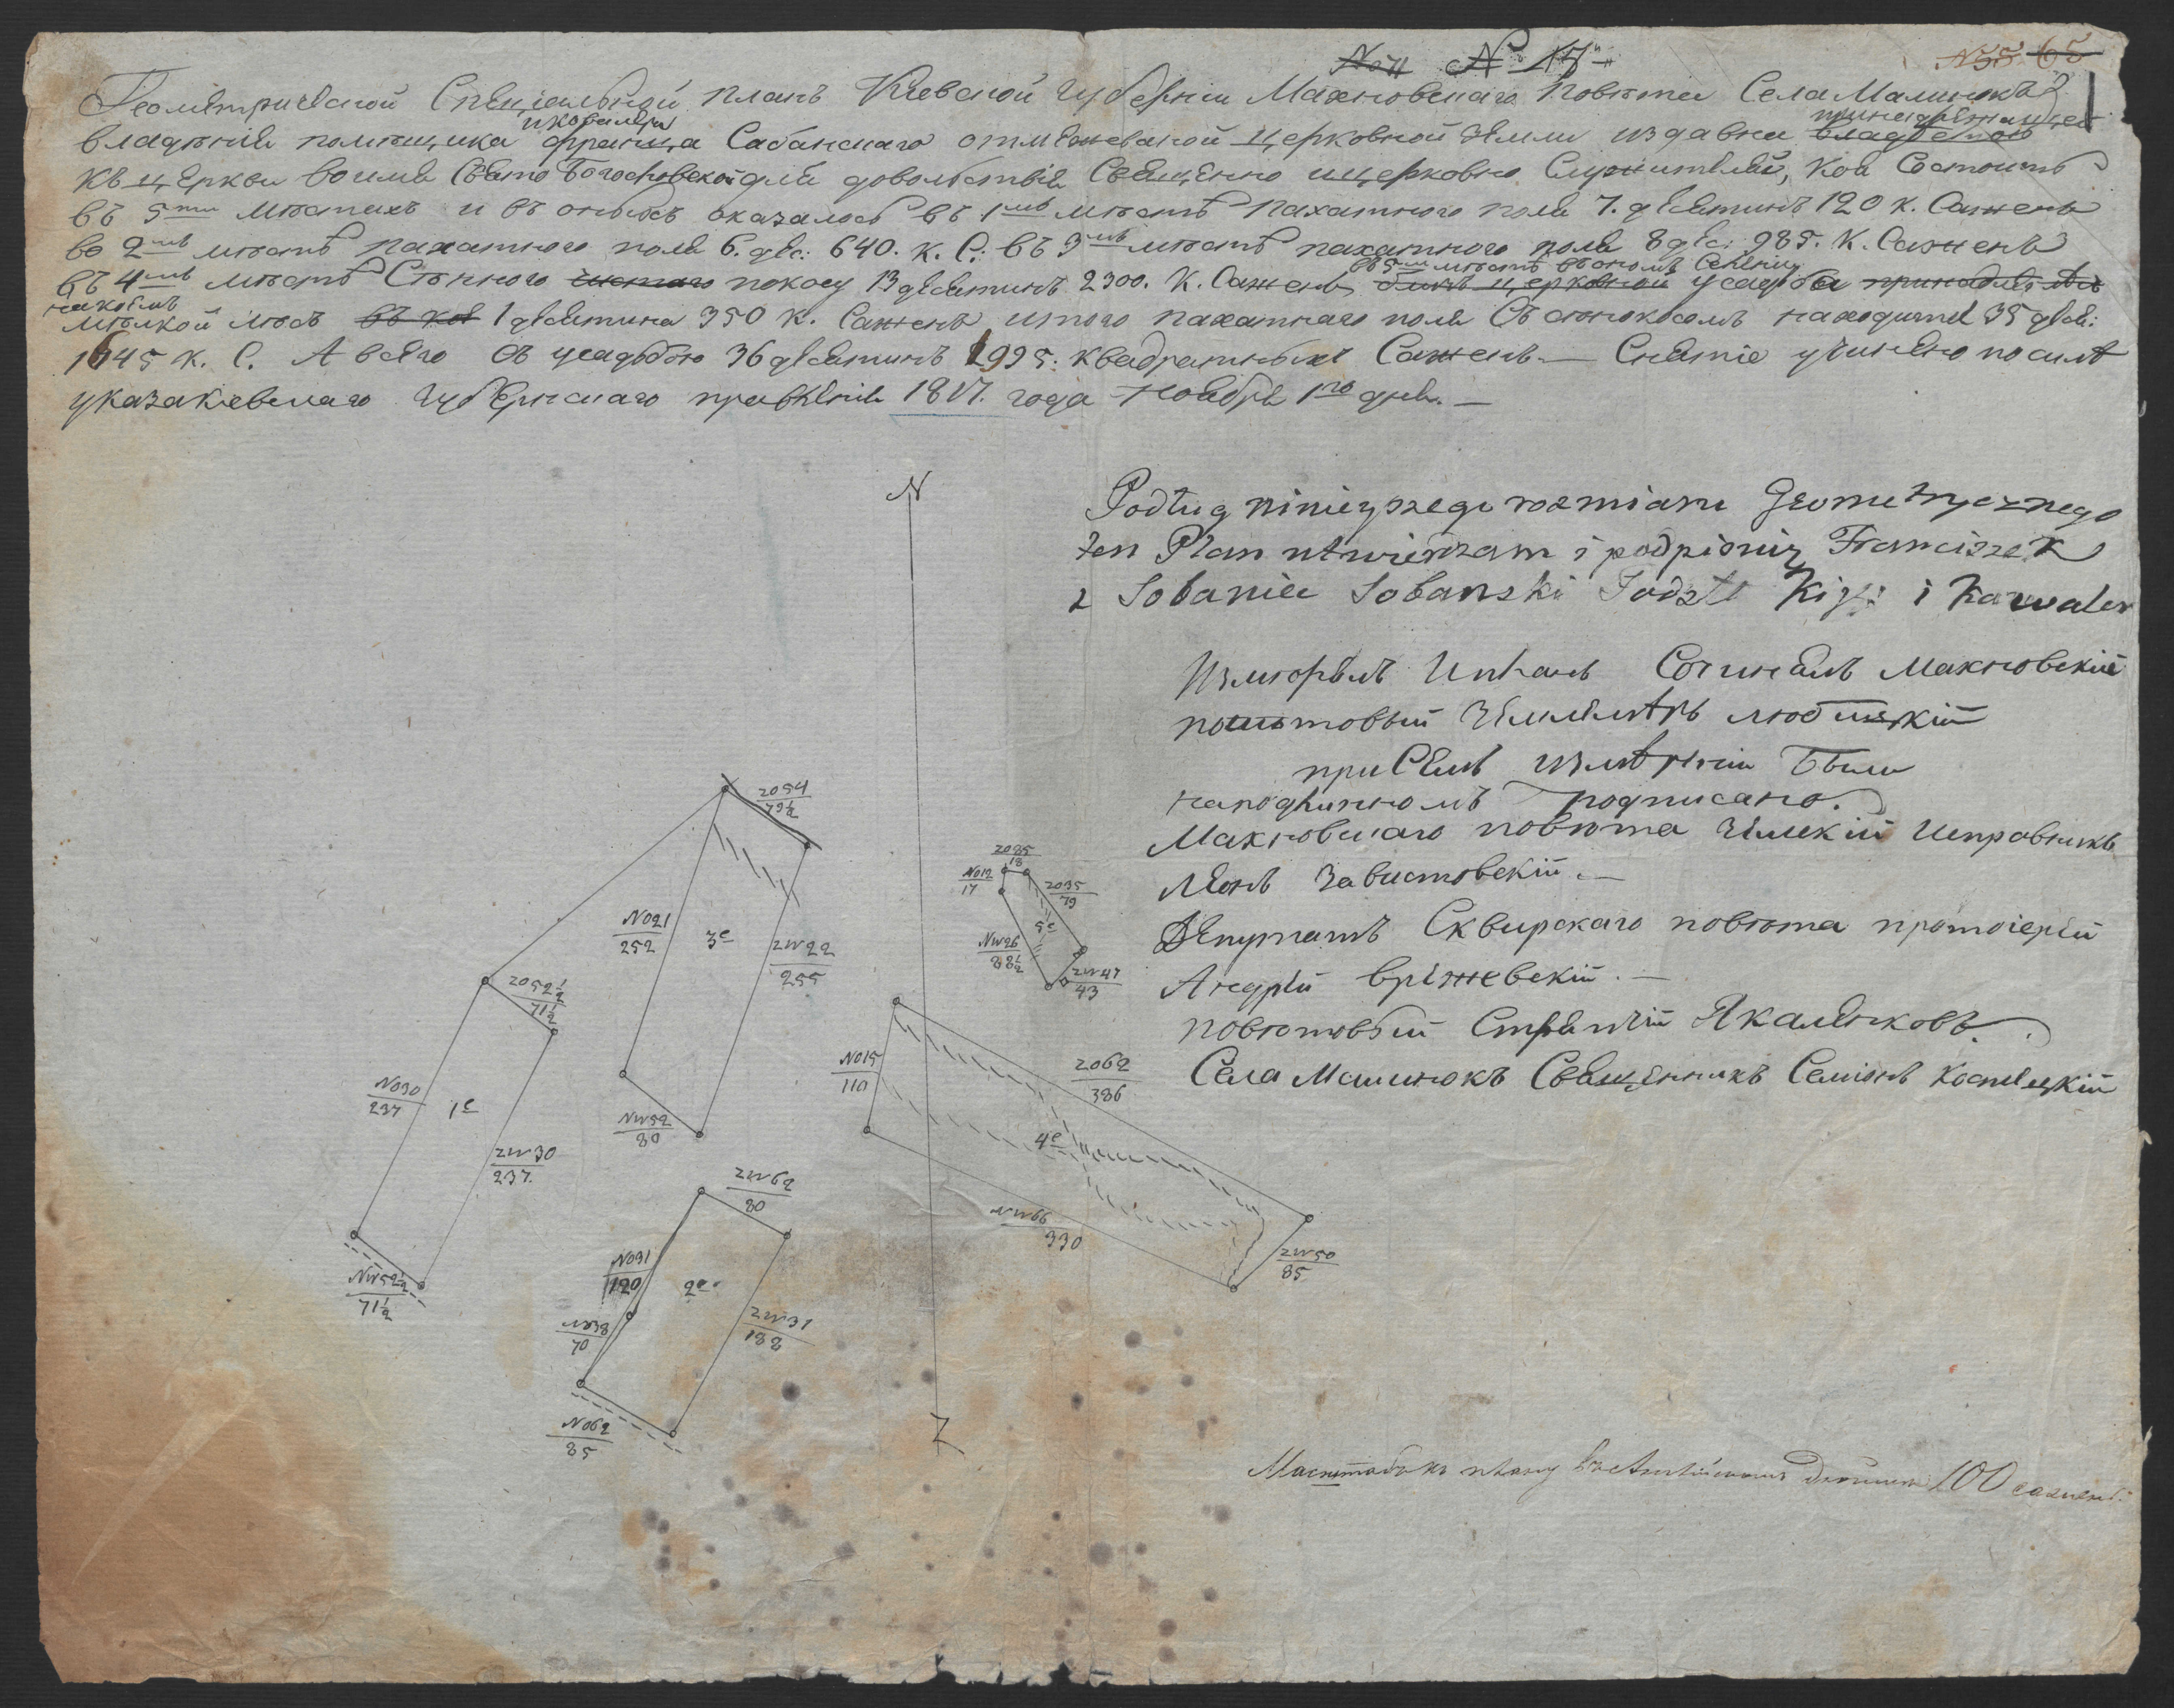 № 11 № 17 № 55 65
Геометрической Специальный планъ Киевской губернiи Махновскаго Повѣта Села Малинокъ
владѣнiя помѣщика и кавалера франца Сабанскаго отмежеваной церковной земли издавна принадлежащей
къ церкви во имя Свято Богословской для довольствiя Священно и церковно Служителей, кой Состоитъ
въ 5ти мѣстахъ и въ оныхъ оказалось въ 1мъ мѣстѣ пахатного поля 7. десятинъ 120 к. Сажень
во 2мъ мѣстѣ пахатного поля 6. дес: 640. к. С: въ 3мъ мѣстѣ пахатного поля 8 дес: 985. к. Сажень
въ 5мъ мѣстѣ въ ономъ Селенiи
въ 4мъ мѣстѣ Сѣнного чистаго покосу 13 десятинъ 2300. К. Сажень церковной усадьба
на коемъ
мѣлкой лѣсъ 1 десятина 350 к. Сажень итого пахатнаго поля Съ сѣнокосомъ находится 35 деся:
1645 к. С. А всего Съ усадьбою 36 десятинъ 1995: квадратныхъ Сажень. — Снятiе учинено по силѣ
указа кевскаго губернскаго правленiя 1817. года Ноября 1го дня. —
N
Podług ninieyszego rozmiaru Geometrycznego
ten Plan utwierdzam i podpisuię Franciszek
z Sobaniec Sobanski Kawaler
Измѣрялъ И планъ Сочинялъ Махновскiй
повѣтовый Землемѣръ
при Семъ измѣренiи были
на подлинномъ подписано.
Махновскаго повѣта Земскiй Исправникъ
Леонъ Завистовскiй. —
Депутатъ Сквирскаго повѣта протоiерей
Андрей —
повѣтовый Стряпчiй Якаленковъ.
Села Малинокъ Священникъ Семiонъ Костецкiй
ZO 54
79½
NO 21
252
3е
ZW 22
255
NW 52
80
ZO 52½
71½
NO 30
237
1е
ZW 30
237.
NW 52½
71½
ZO 85
18
NO 12
17
ZO 35
79
5е
NW 26
88½
ZW 47
43
NO 15
110
ZO 62
386
4е
NW 66
330
ZW 50
85
ZW 62
80
NO 31
120
2е.
NO 38
70
ZW 31
182
NO 62
85
Z
Масштабъ къ плану въ Английскомъ дюйме 100 сажень: